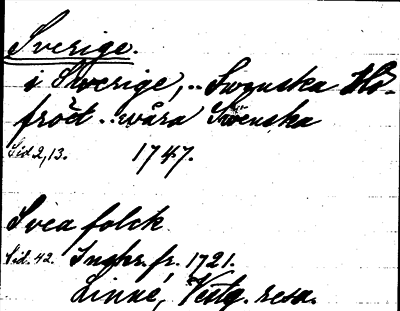 Sverige.
i Sverige, .. Swenska Hö-
fröet .. wåra Swenska
Sid 2, 13. 1747.
Svea folck
Sid. 42. Inskr. fr. 1721.
Linné, Vestg. resa.